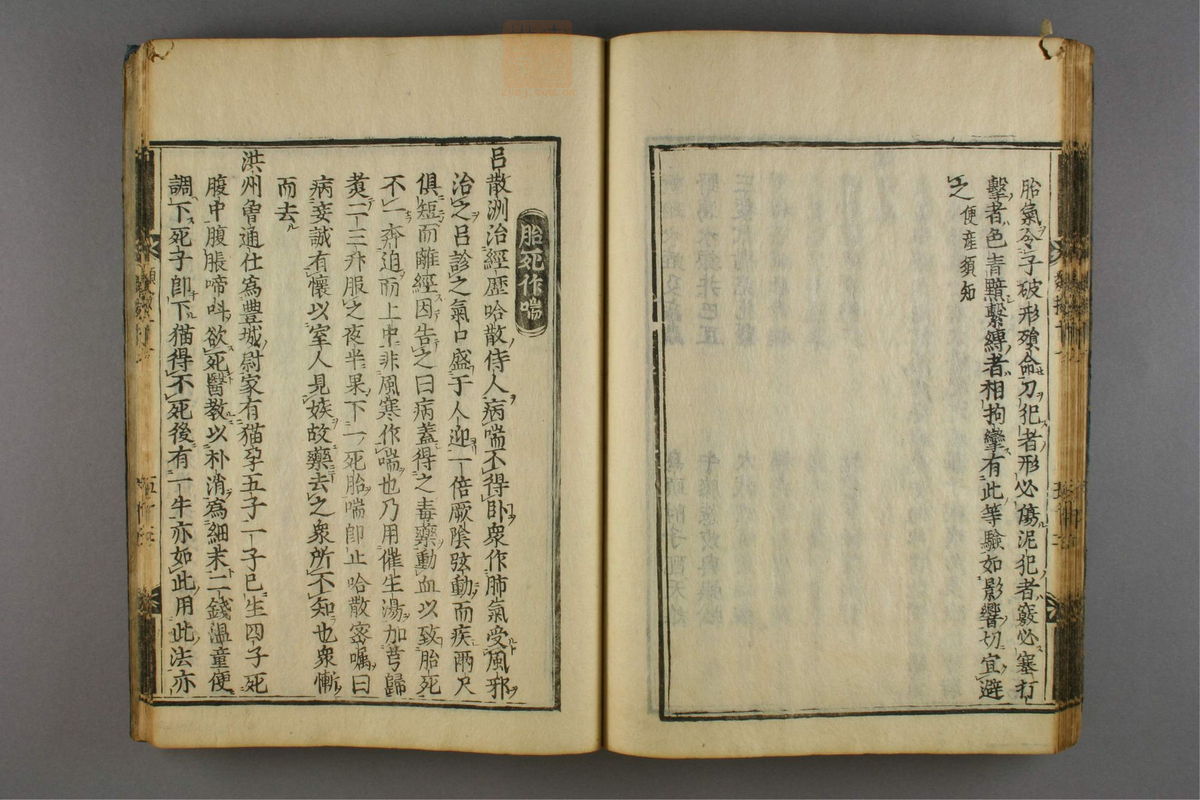 胎氣令子破形殞命刀犯者形必傷泥犯者竅必塞打
擊者色青黯繫縛者相拘攣有此等驗如影響切宜避
之 便産須知
胎死作喘
呂散洲治經歷哈散侍人病喘不得臥衆作肺氣受風邪
治之呂診之氣口盛于人迎一倍厥陰弦動而疾兩尺
俱短而離經因告之曰病蓋得之毒藥動血以致胎死
不一奔迫而上中非風寒作喘也乃用催生湯加芎歸
煑二三升服之夜半果下一死胎喘卽止哈散密嘱曰
病妾誠有懷以室人見嫉故藥去之衆所不知也衆慚
而去
洪州魯通仕寫豐城尉家有猫孕五子一子已生四子死
腹中腹脹啼呌欲死醫教以朴消爲細末二錢溫童便
調下死子卽下猫得不死後有一牛亦如此用此法亦